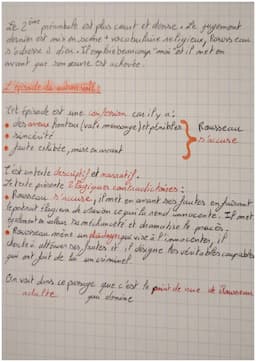 Le 2ème préambule est plus court et dense. Le jugement
dernier est mis en scène + vocabulaire religieux, Rousseau
s'adresse à dieu. Il emploie beaucoup "moi" et il met en
avant que son œuvre est achevée.
L'épisode du ruban volé:
Cet épisode est une confession car il y a:
• des aveux honteux (vol + mensonge) et pénibles
• sincérité
• faute exhibée, mise en avant
Rousseau
s'accuse
C'est un texte descriptif et narratif.
Le texte présente 2 logiques contradictoires:
• Rousseau s'accuse, il met en avant ses fautes en faisant
le portrait élogieux de Marion ce qui la rend innocente. Il met
également en valeur sa méchanceté et dramatise le procès.
• Rousseau mène un plaidoyer qui vise à l'innocenter, il
cherche à atténuer ses fautes et il désigne les véritables coupables
qui ont fait de lui un criminel.
On voit dans ce passage que c'est le point de vue de Rousseau
adulte qui domine